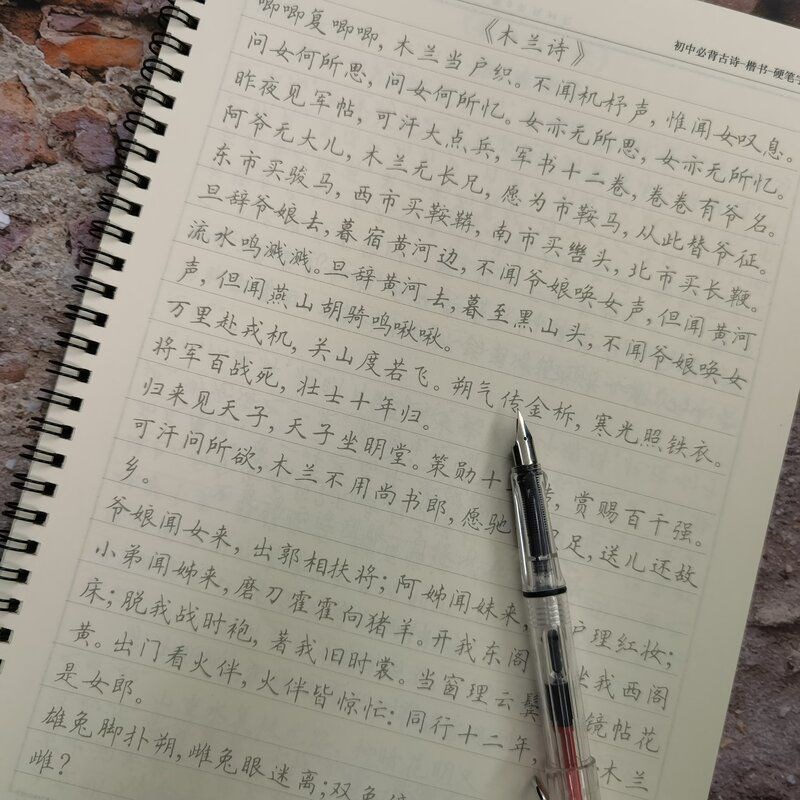 初中必背古诗-楷书-硬笔
《木兰诗》
唧唧复唧唧，木兰当户织。不闻机杼声，惟闻女叹息。
问女何所思，问女何所忆。女亦无所思，女亦无所忆。
昨夜见军帖，可汗大点兵，军书十二卷，卷卷有爷名。
阿爷无大儿，木兰无长兄，愿为市鞍马，从此替爷征。
东市买骏马，西市买鞍鞯，南市买辔头，北市买长鞭。
旦辞爷娘去，暮宿黄河边，不闻爷娘唤女声，但闻黄河
流水鸣溅溅。旦辞黄河去，暮至黑山头，不闻爷娘唤女
声，但闻燕山胡骑鸣啾啾。
万里赴戎机，关山度若飞。朔气传金柝，寒光照铁衣。
将军百战死，壮士十年归。
归来见天子，天子坐明堂。策勋十，赏赐百千强。
可汗问所欲，木兰不用尚书郎，愿驰足，送儿还故
乡。
爷娘闻女来，出郭相扶将；阿姊闻妹来，户理红妆；
小弟闻姊来，磨刀霍霍向猪羊。开我东阁坐我西阁
床；脱我战时袍，著我旧时裳。当窗理云鬓镜帖花
黄。出门看火伴，火伴皆惊忙：同行十二年，木兰
是女郎。
雄兔脚扑朔，雌兔眼迷离；双兔
雌？